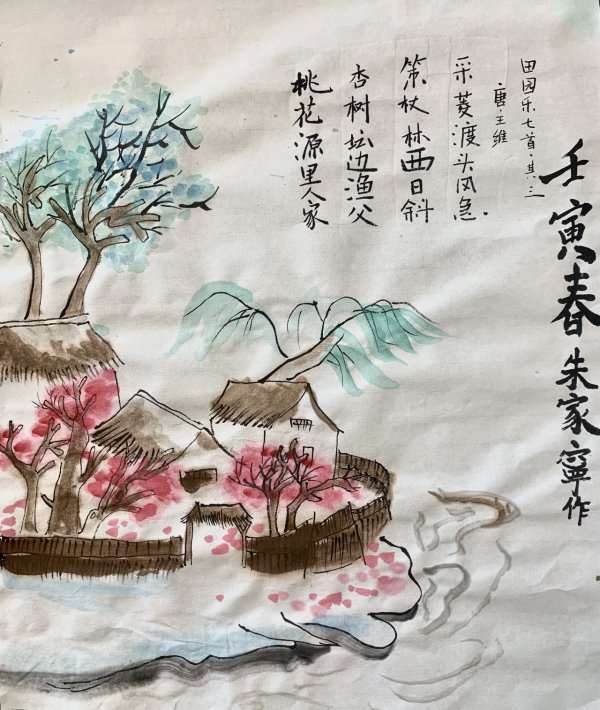 壬寅春朱家寧作
田园乐七首·其三
唐·王维
采菱渡头风急.
策杖林西日斜
杏树坛边渔父
桃花源里人家